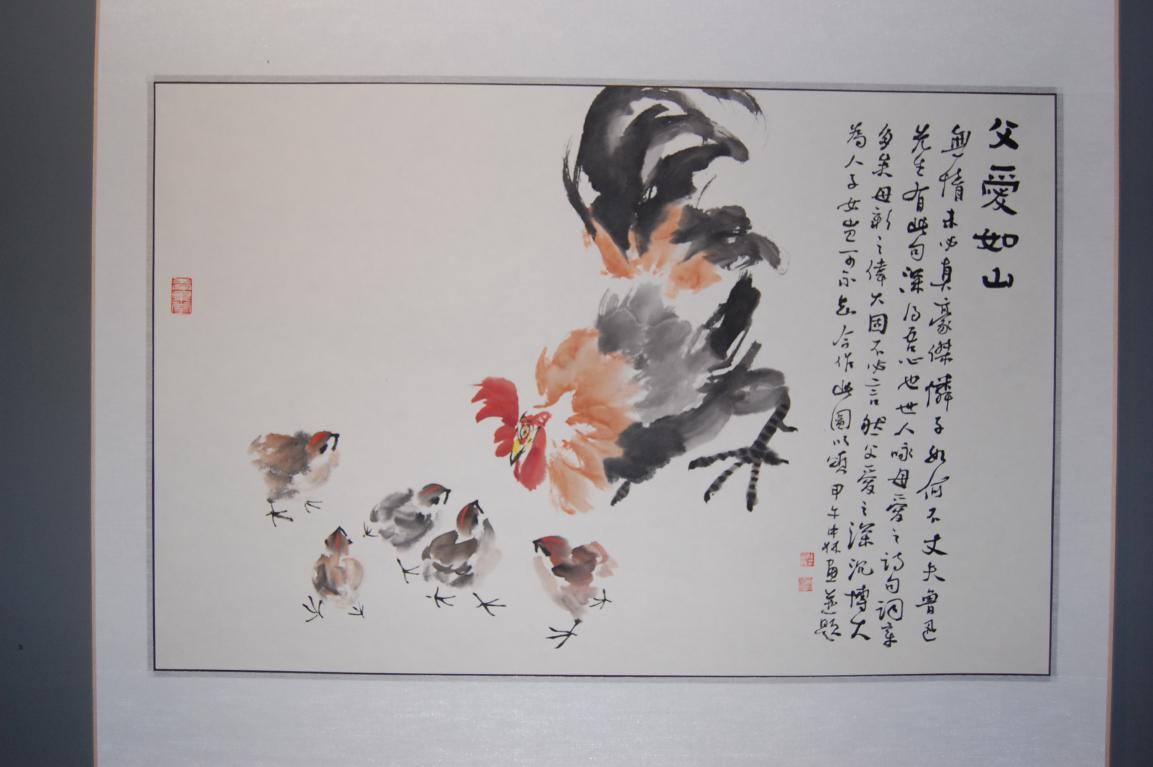 父愛如山
無情未必真豪傑憐子如何不丈夫魯迅
先生有此句深得吾心也世人咏母愛之詩句詞章
多矣母親之偉大固不必言然父愛之深沉博大
為人子女豈可不知今作此圖以頌甲午中林画並題